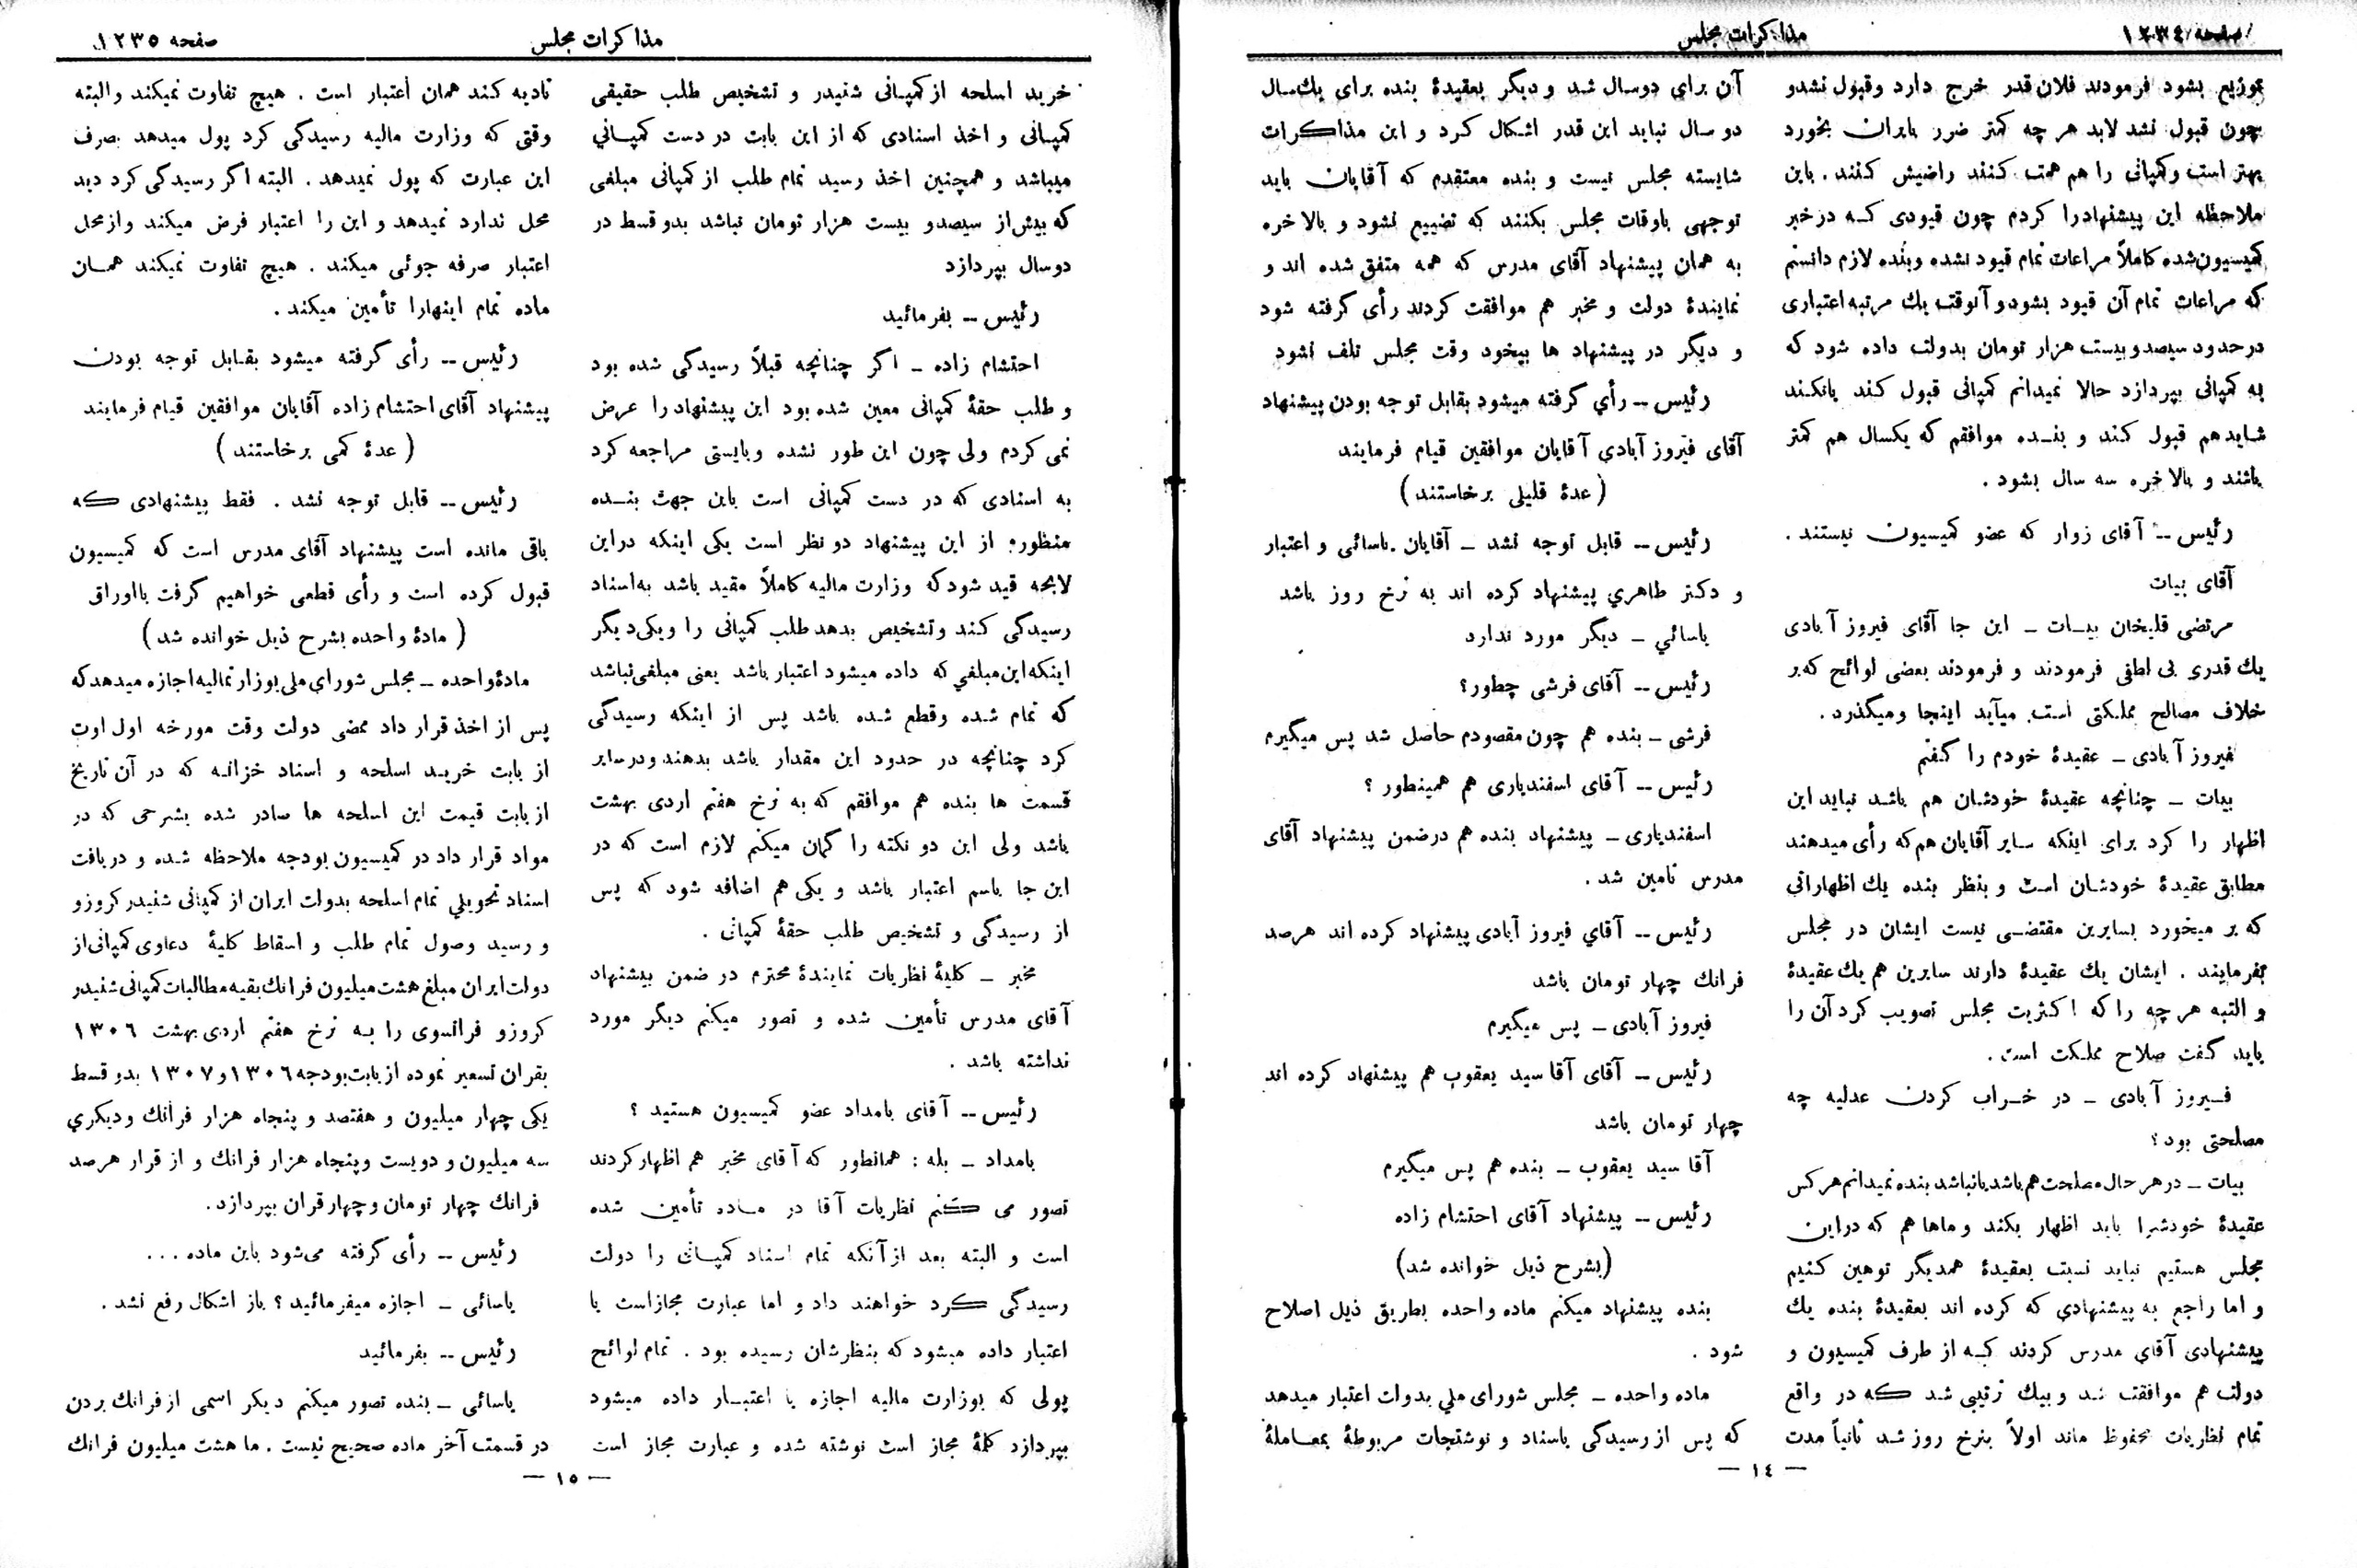 صفحه ۱۲۳٤
مذاکرات مجلس
توزیع بشود فرمودند فلان قدر خرج دارد وقبول نشدو
چون قبول نشد لابد هر چه کمتر ضرر بایران بخورد
بهتر است وکمپانی را هم همت کنند راضیش کنند . باین
ملاحظه این پیشنهادرا کردم چون قیودی که درخبر
کمیسیون‌شده کاملاً مراعات تمام قیود نشده وبنده لازم دانستم
که مراعات تمام آن قیود بشود و آنوقت یك مرتبه اعتباری
درحدود سیصدوبیست هزار تومان بدولت داده شود که
به کمپانی بپردازد حالا نمیدانم کمپانی قبول کند یانکند
شایدهم قبول کند و بنده موافقم که یکسال هم کمتر
باشند و بالاخره سه سال بشود .
رئیس -- آقای زوار که عضو کمیسیون نیستند .
آقای بیات
مرتضی قلیخان بیات - این جا آقای فیروز آبادی
یك قدری بی لطفی فرمودند و فرمودند بعضی لوائح که بر
خلاف مصالح مملکتی است. میآید اینجا ومیگذرد .
فیروز آبادی - عقیدهٔ خودم را گفتم
بیات - چنانچه عقیدهٔ خودشان هم باشد نباید این
اظهار را کرد برای اینکه سایر آقایان هم‌که رأی میدهند
مطابق عقیدهٔ خودشان است و بنظر بنده یك اظهاراتی
که بر میخورد بسایرین مقتضی نیست ایشان در مجلس
بفرمایند . ایشان یك عقیدهٔ دارند سایرین هم یك عقیدهٔ
و التبه هر چه را که اکثریت مجلس تصویب کرد آن را
باید گفت صلاح مملکت است .
فیروز آبادی - در خراب کردن عدلیه چه
مصلحتی بود ؟
بیات - درهرحال مصلحت‌هم‌باشد یانباشد بنده نمیدانم هرکس
عقیدهٔ خودشرا باید اظهار بکند و ماها هم که دراین
مجلس هستیم نباید نسبت بعقیدهٔ همدیگر توهین کنیم
و اما راجع به پیشنهادی که کرده اند بعقیدهٔ بنده یك
پیشنهادی آقای مدرس کردند که از طرف کمیسیون و
دولت هم موافقت شد و بیك ترتیبی شد که در واقع
تمام نظریات محفوظ ماند اولاً بنرخ روز شد ثانیاً مدت
آن برای دوسال شد و دیگر بعقیدهٔ بنده برای یك‌سال
دو سال نباید این قدر اشکال کرد و این مذاکرات
شایسته مجلس نیست و بنده معتقدم که آقایان باید
توجهی باوقات مجلس بکنند که تضییع نشود و بالاخره
به همان پیشنهاد آقای مدرس که همه متفق شده اند و
نمایندهٔ دولت و مخبر هم موافقت کردند رأی گرفته شود
و دیگر در پیشنهاد ها بیخود وقت مجلس تلف نشود
رئیس -- رأي گرفته میشود بقابل توجه بودن پیشنهاد
آقای فیروز آبادی آقایان موافقین قیام فرمایند
( عدهٔ قلیلی برخاستند )
رئیس -- قابل توجه نشد - آقایان . یاسائی و اعتبار
و دکتر طاهري پیشنهاد کرده اند به نرخ روز باشد
یاسائي - دیگر مورد ندارد
رئیس -- آقای فرشی چطور؟
فرشی - بنده هم چون مقصودم حاصل شد پس میگیرم
رئیس -- آقای اسفندیاری هم همینطور ؟
اسفندیاری - پیشنهاد بنده هم درضمن پیشنهاد آقای
مدرس تأمین شد .
رئیس -- آقاي فیروز آبادی پیشنهاد کرده اند هرصد
فرانك چهار تومان باشد
فیروز آبادی - پس میگیرم
رئیس -- آقای آقا سید یعقوب هم پیشنهاد کرده اند
چهار تومان باشد
آقا سید یعقوب - بنده هم پس میگیرم
رئیس -- پیشنهاد آقای احتشام زاده
(بشرح ذیل خوانده شد)
بنده پیشنهاد میکنم ماده واحده بطریق ذیل اصلاح
شود .
ماده واحده - مجلس شورای ملي بدولت اعتبار میدهد
که پس از رسیدگی باسناد و نوشتجات مربوطهٔ بمعاملهٔ
— ۱٤ —
مذاکرات مجلس
صفحه ۱۲۳٥
خرید اسلحه از کمپانی شنیدر و تشخیص طلب حقیقی
کمپانی و اخذ اسنادی که از این بابت در دست کمپاني
میباشد و همچنین اخذ رسید تمام طلب از کمپانی مبلغی
که بیش‌از سیصدو بیست هزار تومان نباشد بدو قسط در
دوسال بپردازد
رئیس -- بفرمائید
احتشام زاده - اگر چنانچه قبلاً رسیدگی شده بود
و طلب حقهٔ کمپانی معین شده بود این پیشنهاد را عرض
نمی کردم ولی چون این طور نشده وبایستی مراجعه کرد
به اسنادی که در دست کمپانی است باین جهت بنده
منظورم از این پیشنهاد دو نظر است یکی اینکه دراین
لایحه قید شودکه وزارت مالیه کاملاً مقید باشد به‌اسناد
رسیدگی کند وتشخیص بدهد طلب کمپانی را ویکی‌دیگر
اینکه این مبلغي که داده میشود اعتبار باشد یعنی مبلغی نباشد
که تمام شده وقطع شده باشد پس از اینکه رسیدگی
کرد چنانچه در حدود این مقدار باشد بدهند ودرسایر
قسمت ها بنده هم موافقم که به نرخ هفتم اردی بهشت
باشد ولی این دو نکته را گمان میکنم لازم است که در
این جا باسم اعتبار باشد و یکی هم اضافه شود که پس
از رسیدگی و تشخیص طلب حقهٔ کمپانی .
مخبر - کلیهٔ نظریات نمایندهٔ محترم در ضمن پیشنهاد
آقای مدرس تأمین شده و تصور میکنم دیگر مورد
نداشته باشد .
رئیس -- آقای بامداد عضو کمیسیون هستید ؟
بامداد - بله : همانطور که آقای مخبر هم اظهارکردند
تصور می کنم نظریات آقا در ماده تأمین شده
است و البته بعد از آنکه تمام اسناد کمپانی را دولت
رسیدگی کرد خواهند داد و اما عبارت مجازاست یا
اعتبار داده میشود که بنظرشان رسیده بود . تمام لوائح
پولی که بوزارت مالیه اجازه یا اعتبار داده میشود
بپردازد کلمهٔ مجاز است نوشته شده و عبارت مجاز است
تادیه کند همان اعتبار است . هیچ تفاوت نمیکند والبته
وقتی که وزارت مالیه رسیدگی کرد پول میدهد بصرف
این عبارت که پول نمیدهد . البته اگر رسیدگی کرد دید
محل ندارد نمیدهد و این را اعتبار فرض میکند وازمحل
اعتبار صرفه جوئی میکند . هیچ تفاوت نمیکند همان
ماده تمام اینهارا تأمین میکند .
رئیس -- رأی گرفته میشود بقابل توجه بودن
پیشنهاد آقای احتشام زاده آقایان موافقین قیام فرمایند
( عدهٔ کمی برخاستند )
رئیس -- قابل توجه نشد . فقط پیشنهادی که
باقی مانده است پیشنهاد آقای مدرس است که کمیسیون
قبول کرده است و رأی قطعی خواهیم گرفت بااوراق
( مادهٔ واحده بشرح ذیل خوانده شد )
مادهٔ واحده - مجلس شورای ملی بوزارتمالیه اجازه میدهد که
پس از اخذ قرار داد ممضی دولت وقت مورخه اول اوت
از بابت خرید اسلحه و اسناد خزانه که در آن تاریخ
از بابت قیمت این اسلحه ها صادر شده بشرحی که در
مواد قرار داد در کمیسیون بودجه ملاحظه شده و دریافت
اسناد تحویلي تمام اسلحه بدولت ایران از کمپانی شنیدرکروزو
و رسید وصول تمام طلب و اسقاط کلیهٔ دعاوی کمپانی‌از
دولت ایران مبلغ هشت میلیون فرانك بقیه مطالبات کمپانی شنیدر
کروزو فرانسوی را به نرخ هفتم اردی بهشت ۱۳۰٦
بقران تسعیر نموده از بابت بودجه ۱۳۰٦ و ۱۳۰۷ بدو قسط
یکی چهار میلیون و هفتصد و پنجاه هزار فرانك ودیگري
سه میلیون و دویست وپنجاه هزار فرانك و از قرار هرصد
فرانك چهار تومان وچهارقران بپردازد .
رئیس -- رأی گرفته می‌شود باین ماده ...
یاسائی - اجازه میفرمائید ؟ باز اشکال رفع نشد .
رئیس -- بفرمائید
یاسائی - بنده تصور میکنم دیگر اسمی از فرانك بردن
در قسمت آخر ماده صحیح نیست . ما هشت میلیون فرانك
— ۱٥ —